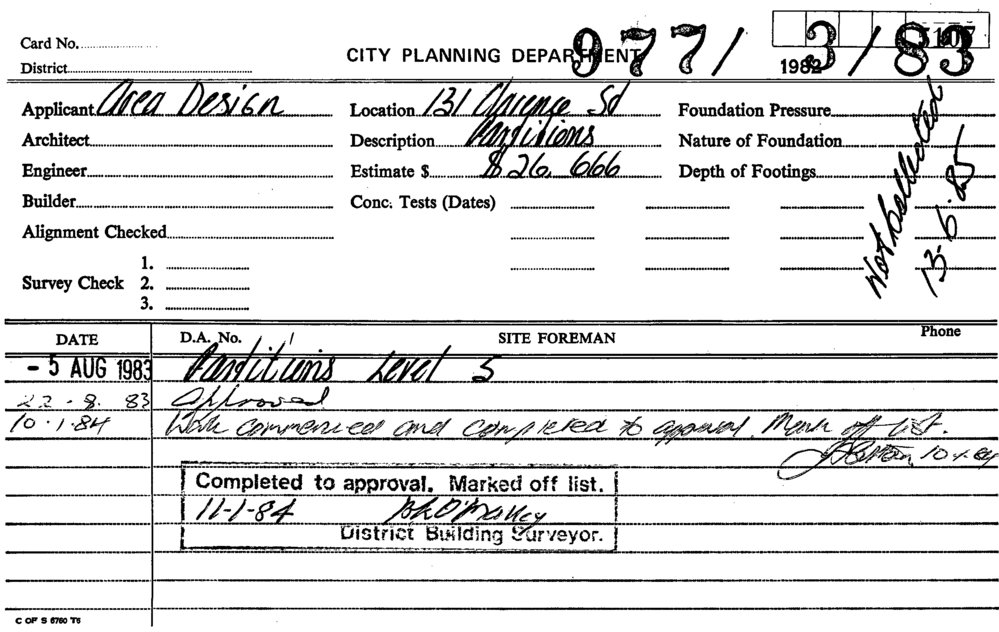 Card No.
CITY PLANNING DEPARTMENT
977/3/83
5107
District
1982
Applicant Area Design
Location 131 Clarence Sd
Foundation Pressure
Architect
Description Partitions
Nature of Foundation
Engineer
Estimate $ $26,666
Depth of Footings
Builder
Conc. Tests (Dates)
Not Collected
13-6-85
Alignment Checked
1.
Survey Check 2.
3.
DATE D.A. No. SITE FOREMAN Phone
- 5 AUG 1983 Partitions Level 5
22-8-83 Approved
10-1-84 Work commenced and completed to approval. Mark off list.
10-1-84
Completed to approval. Marked off list.
11-1-84 O'Malley
District Building Surveyor.
C OF S 6760 T6